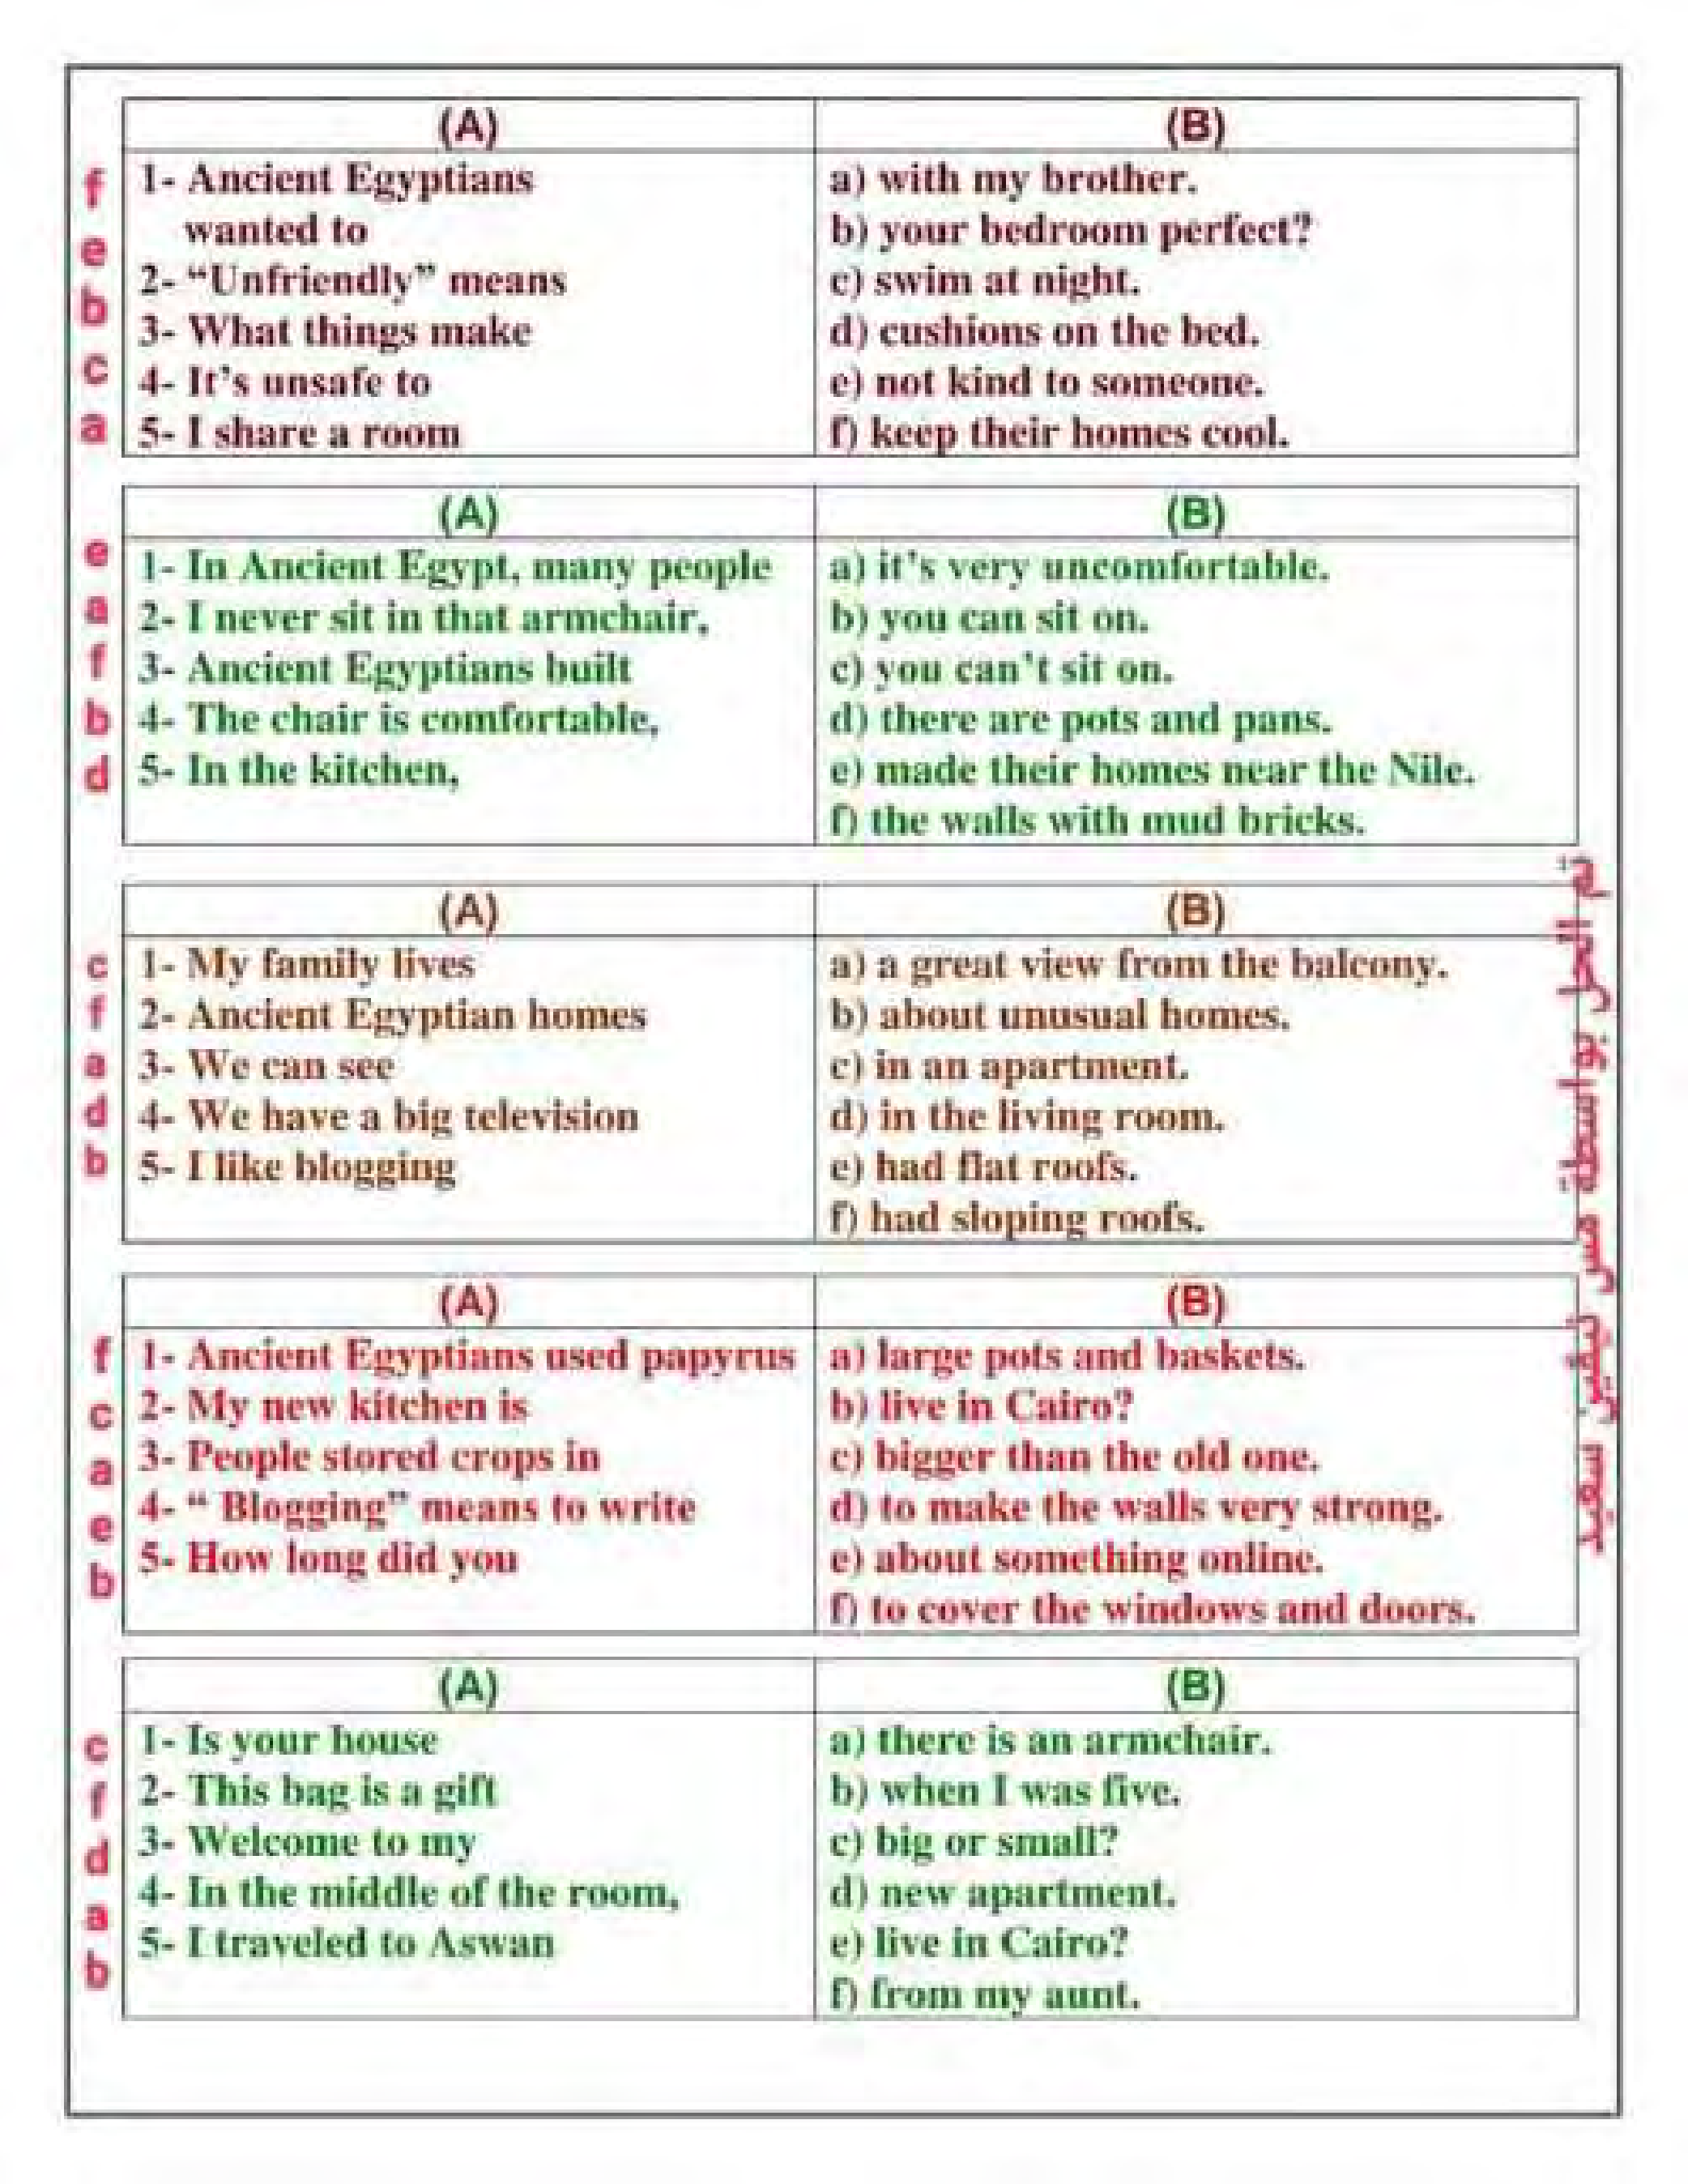 (A) (B)
f 1- Ancient Egyptians a) with my brother.
wanted to b) your bedroom perfect?
e 2- “Unfriendly” means c) swim at night.
b 3- What things make d) cushions on the bed.
c 4- It’s unsafe to e) not kind to someone.
a 5- I share a room f) keep their homes cool.
(A) (B)
e 1- In Ancient Egypt, many people a) it’s very uncomfortable.
a 2- I never sit in that armchair, b) you can sit on.
f 3- Ancient Egyptians built c) you can’t sit on.
b 4- The chair is comfortable, d) there are pots and pans.
d 5- In the kitchen, e) made their homes near the Nile.
f) the walls with mud bricks.
(A) (B)
c 1- My family lives a) a great view from the balcony.
f 2- Ancient Egyptian homes b) about unusual homes.
a 3- We can see c) in an apartment.
d 4- We have a big television d) in the living room.
b 5- I like blogging e) had flat roofs.
f) had sloping roofs.
(A) (B)
f 1- Ancient Egyptians used papyrus a) large pots and baskets.
c 2- My new kitchen is b) live in Cairo?
a 3- People stored crops in c) bigger than the old one.
e 4- “ Blogging” means to write d) to make the walls very strong.
b 5- How long did you e) about something online.
f) to cover the windows and doors.
(A) (B)
c 1- Is your house a) there is an armchair.
f 2- This bag is a gift b) when I was five.
d 3- Welcome to my c) big or small?
a 4- In the middle of the room, d) new apartment.
b 5- I traveled to Aswan e) live in Cairo?
f) from my aunt.
تم الحل بواسطة مس نيفين سعيد